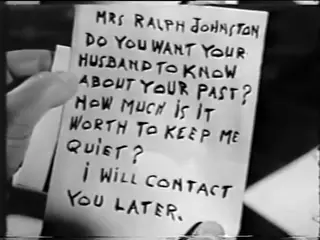 MRS RALPH JOHNSTON
DO YOU WANT YOUR
HUSBAND TO KNOW
ABOUT YOUR PAST?
HOW MUCH IS IT
WORTH TO KEEP ME
QUIET?
i WILL CONTACT
YOU LATER.